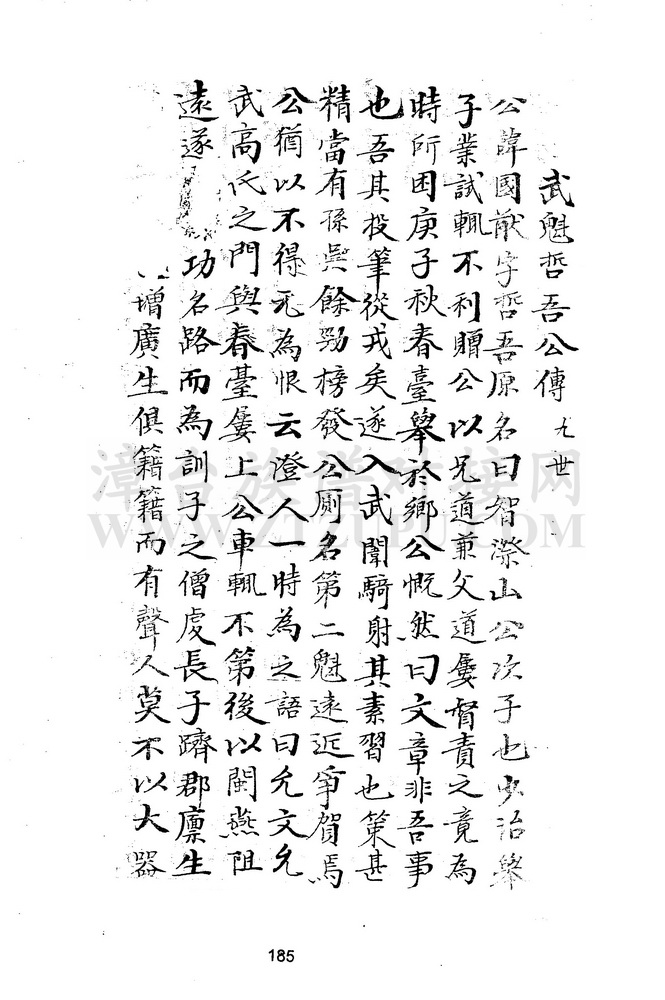 武魁哲吾公傳 九世
公諱國猷字哲吾原名曰智濚山公次子也少治舉
子業試輒不利贈公以兄道兼父道屢督責之竟為
時所困庚子秋春臺舉於鄉公慨然曰文章非吾事
也吾其投筆從戎矣遂入武闈騎射其素習也策甚
精當有孫吳餘勁榜發公厠名第二魁遠近爭賀焉
公猶以不得元為恨云澄人一時為之語曰允文允
武高氏之門與春臺屢上公車輒不第後以閩燕阻
遠遂 功名路而為訓子之僧虔長子躋郡廪生
增廣生俱籍籍而有聲人莫不以大器
185
漳台族谱对接网
WWW.ZTZUPU.COM